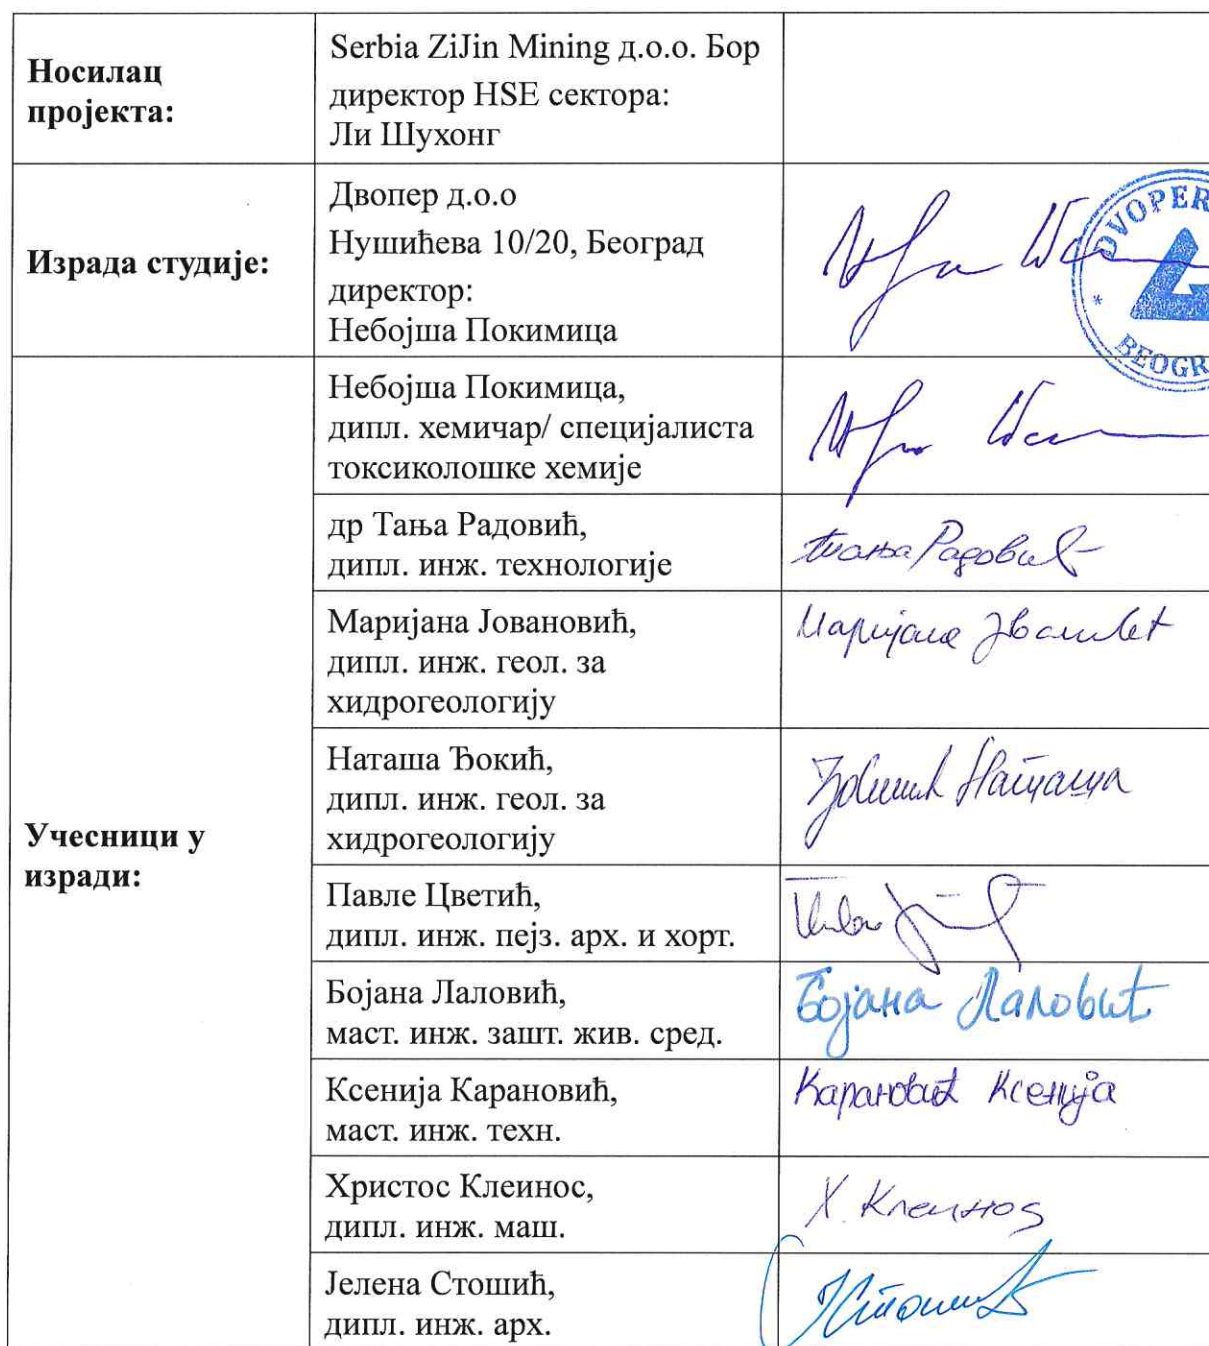 Носилац
пројекта:
Serbia ZiJin Mining д.о.о. Бор
директор HSE сектора:
Ли Шухонг
Израда студије:
Двопер д.о.о
Нушићева 10/20, Београд
директор:
Небојша Покимица
DVOPER
BEOGR
Учесници у
изради:
Небојша Покимица,
дипл. хемичар/ специјалиста
токсиколошке хемије
др Тања Радовић,
дипл. инж. технологије
Тања Радовић
Маријана Јовановић,
дипл. инж. геол. за
хидрогеологију
Маријана
Наташа Ђокић,
дипл. инж. геол. за
хидрогеологију
Наташа
Павле Цветић,
дипл. инж. пејз. арх. и хорт.
Бојана Лаловић,
маст. инж. зашт. жив. сред.
Бојана Лаловић
Ксенија Карановић,
маст. инж. техн.
Карановић Ксенија
Христос Клеинос,
дипл. инж. маш.
Х. Клеинос
Јелена Стошић,
дипл. инж. арх.